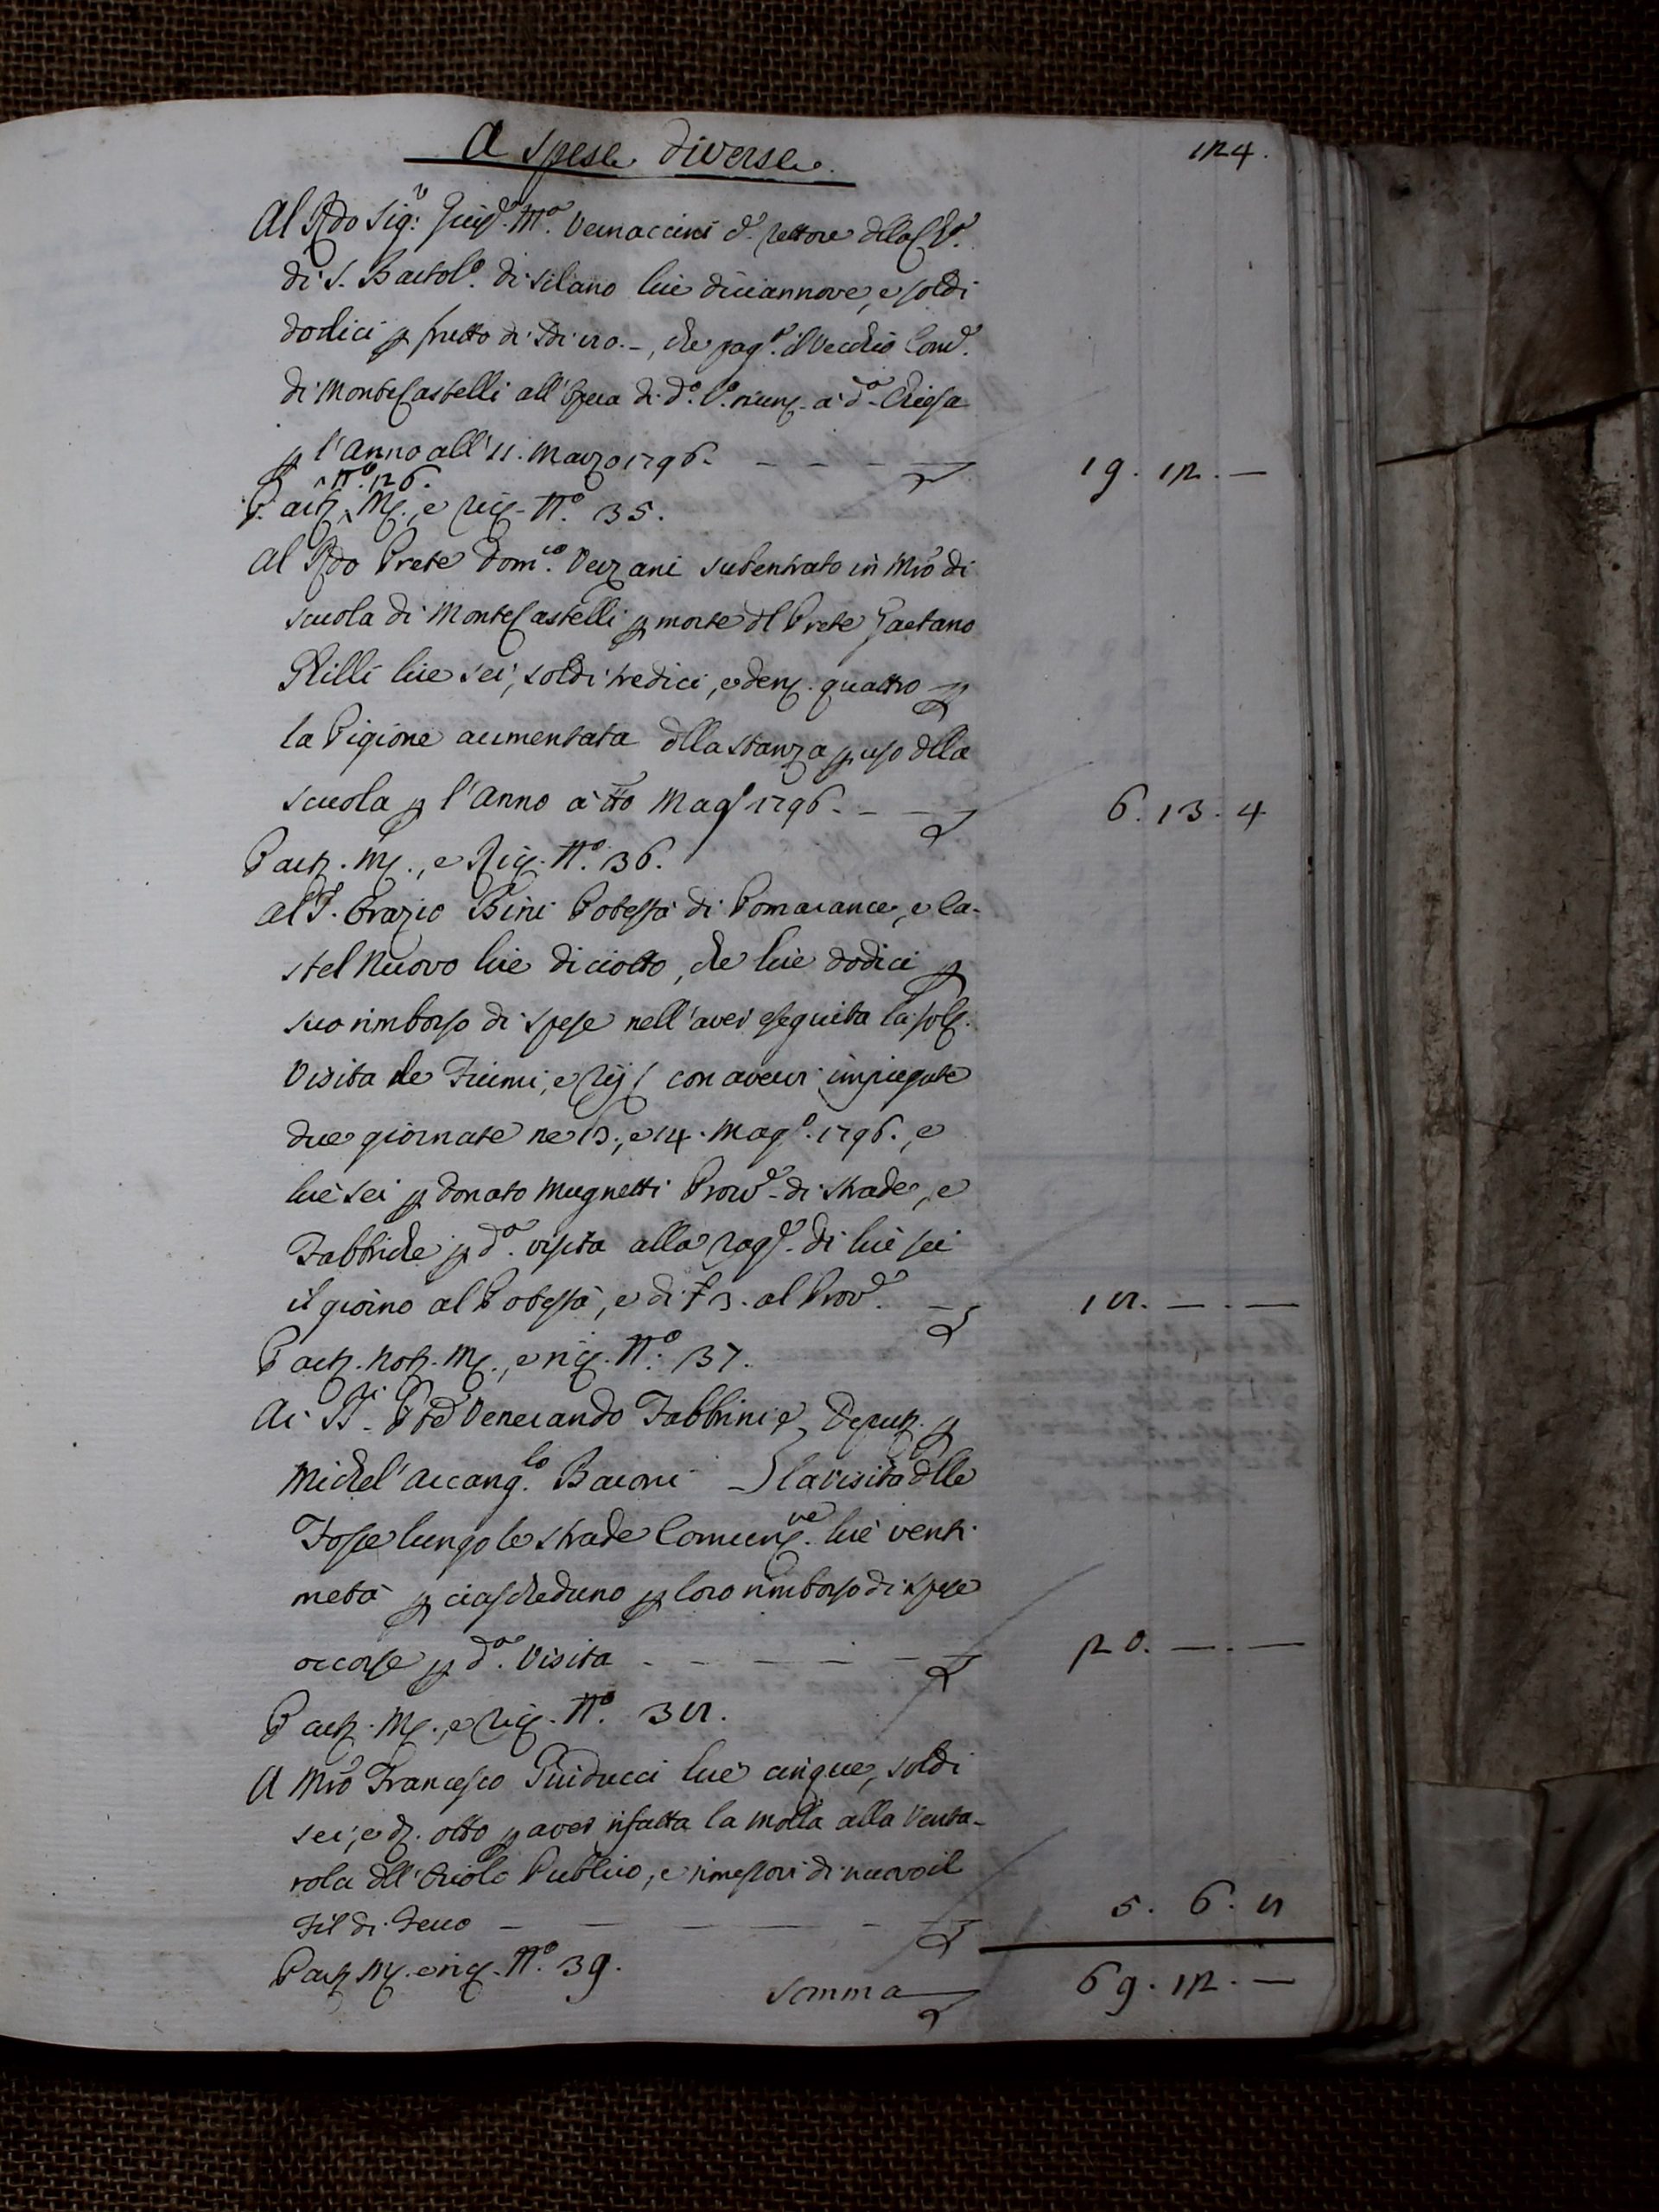 A Spese diverse.
124.
Al Rdo Sig.r Giuse. Ma. Vernaccini d. Rettore della Cha.
di S. Bartolo. di Silano lire diciannove, e soldi
dodici p frutto di
che pago. il Vecchio Come.
di MonteCastelli all'Opera di do.
a da. Chiesa
p l'Anno all'11. Marzo 1796. - - - - 19. 12. —
No. 126.
P. M., e Ric. No. 35.
Al Rdo Prete Domco. Verzani subentrato in Mro di
scuola di MonteCastelli p morte dl Prete Gaetano
Rilli lire sei, soldi tredici, e den. quattro p
la Pigione aumentata dlla stanza p uso dlla
scuola p l'Anno a tto Mago 1796. - - - 6. 13. 4
P M., e Ric. No. 36.
Al S. Orazio Bini Potestà di Pomarance, e Ca-
stel Nuovo lire diciotto, che lire dodici p
suo rimborso di spese nell'aver eseguita la sol.
Visita de Fiumi, e Rij / con averci impiegate
due giornate ne 13., e 14. Mago. 1796., e
lire sei p Donato Mugnetti Provve. di strade, e
Fabbriche p da. visita alla rage. di lire sei
il giorno al Potestà, e di £ 3. al Provve. — 18. —. —
P not. M., e ric. No. 37.
Ai SS.ri Pte Venerando Fabbrini e } Deput. p
Michel'Arcanglo. Baroni - } la visita dlle
Fosse lungo le strade Comunve. lire venti
metà p ciascheduno p loro rimborso di spese
occorse p da. Visita - - - - - - 20. —. —
P M., e Ric. No. 38.
A Mro Francesco Guiducci lire cinque, soldi
sei, e d. otto p aver rifatta la Molla alla Venta-
rola dll'Oriolo Publico, e rimessovi di nuovo il
Fil di Ferro - - - - - - 5. 6. 8
P M. e ric. No. 39.
Somma 69. 12. —